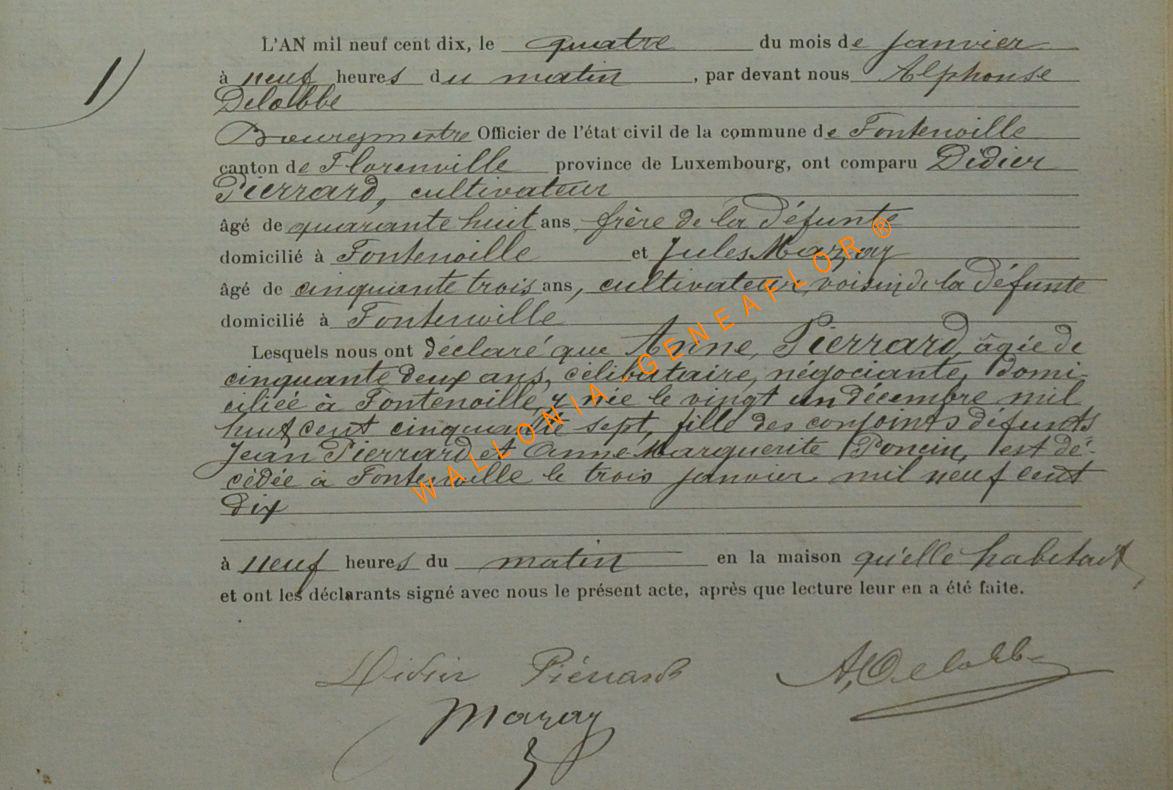 1)
L'AN mil neuf cent dix, le quatre du mois de janvier
à neuf heures du matin, par devant nous Alphonse
Delobbe
Bourgmestre Officier de l'état civil de la commune de Fontenoille
canton de Florenville province de Luxembourg, ont comparu Didier
Pierrard, cultivateur
âgé de quarante huit ans frère de la défunte
domicilié à Fontenoille et Jules Mazay
âgé de cinquante trois ans, cultivateur, voisin de la défunte
domicilié à Fontenoille
Lesquels nous ont déclaré que Anne Pierrard, âgée de
cinquante deux ans, célibataire, négociante, domi-
ciliée à Fontenoille y née le vingt un décembre mil
huit cent cinquante sept, fille des conjoints défunts
Jean Pierrard et Anne Marguerite Poncin, est dé-
cédée à Fontenoille le trois janvier mil neuf cent
dix
à neuf heures du matin en la maison qu'elle habitait,
et ont les déclarants signé avec nous le présent acte, après que lecture leur en a été faite.
Didier Piérrard A. Delobbe
Mazay
WALLONIA-GENEAFLOR®